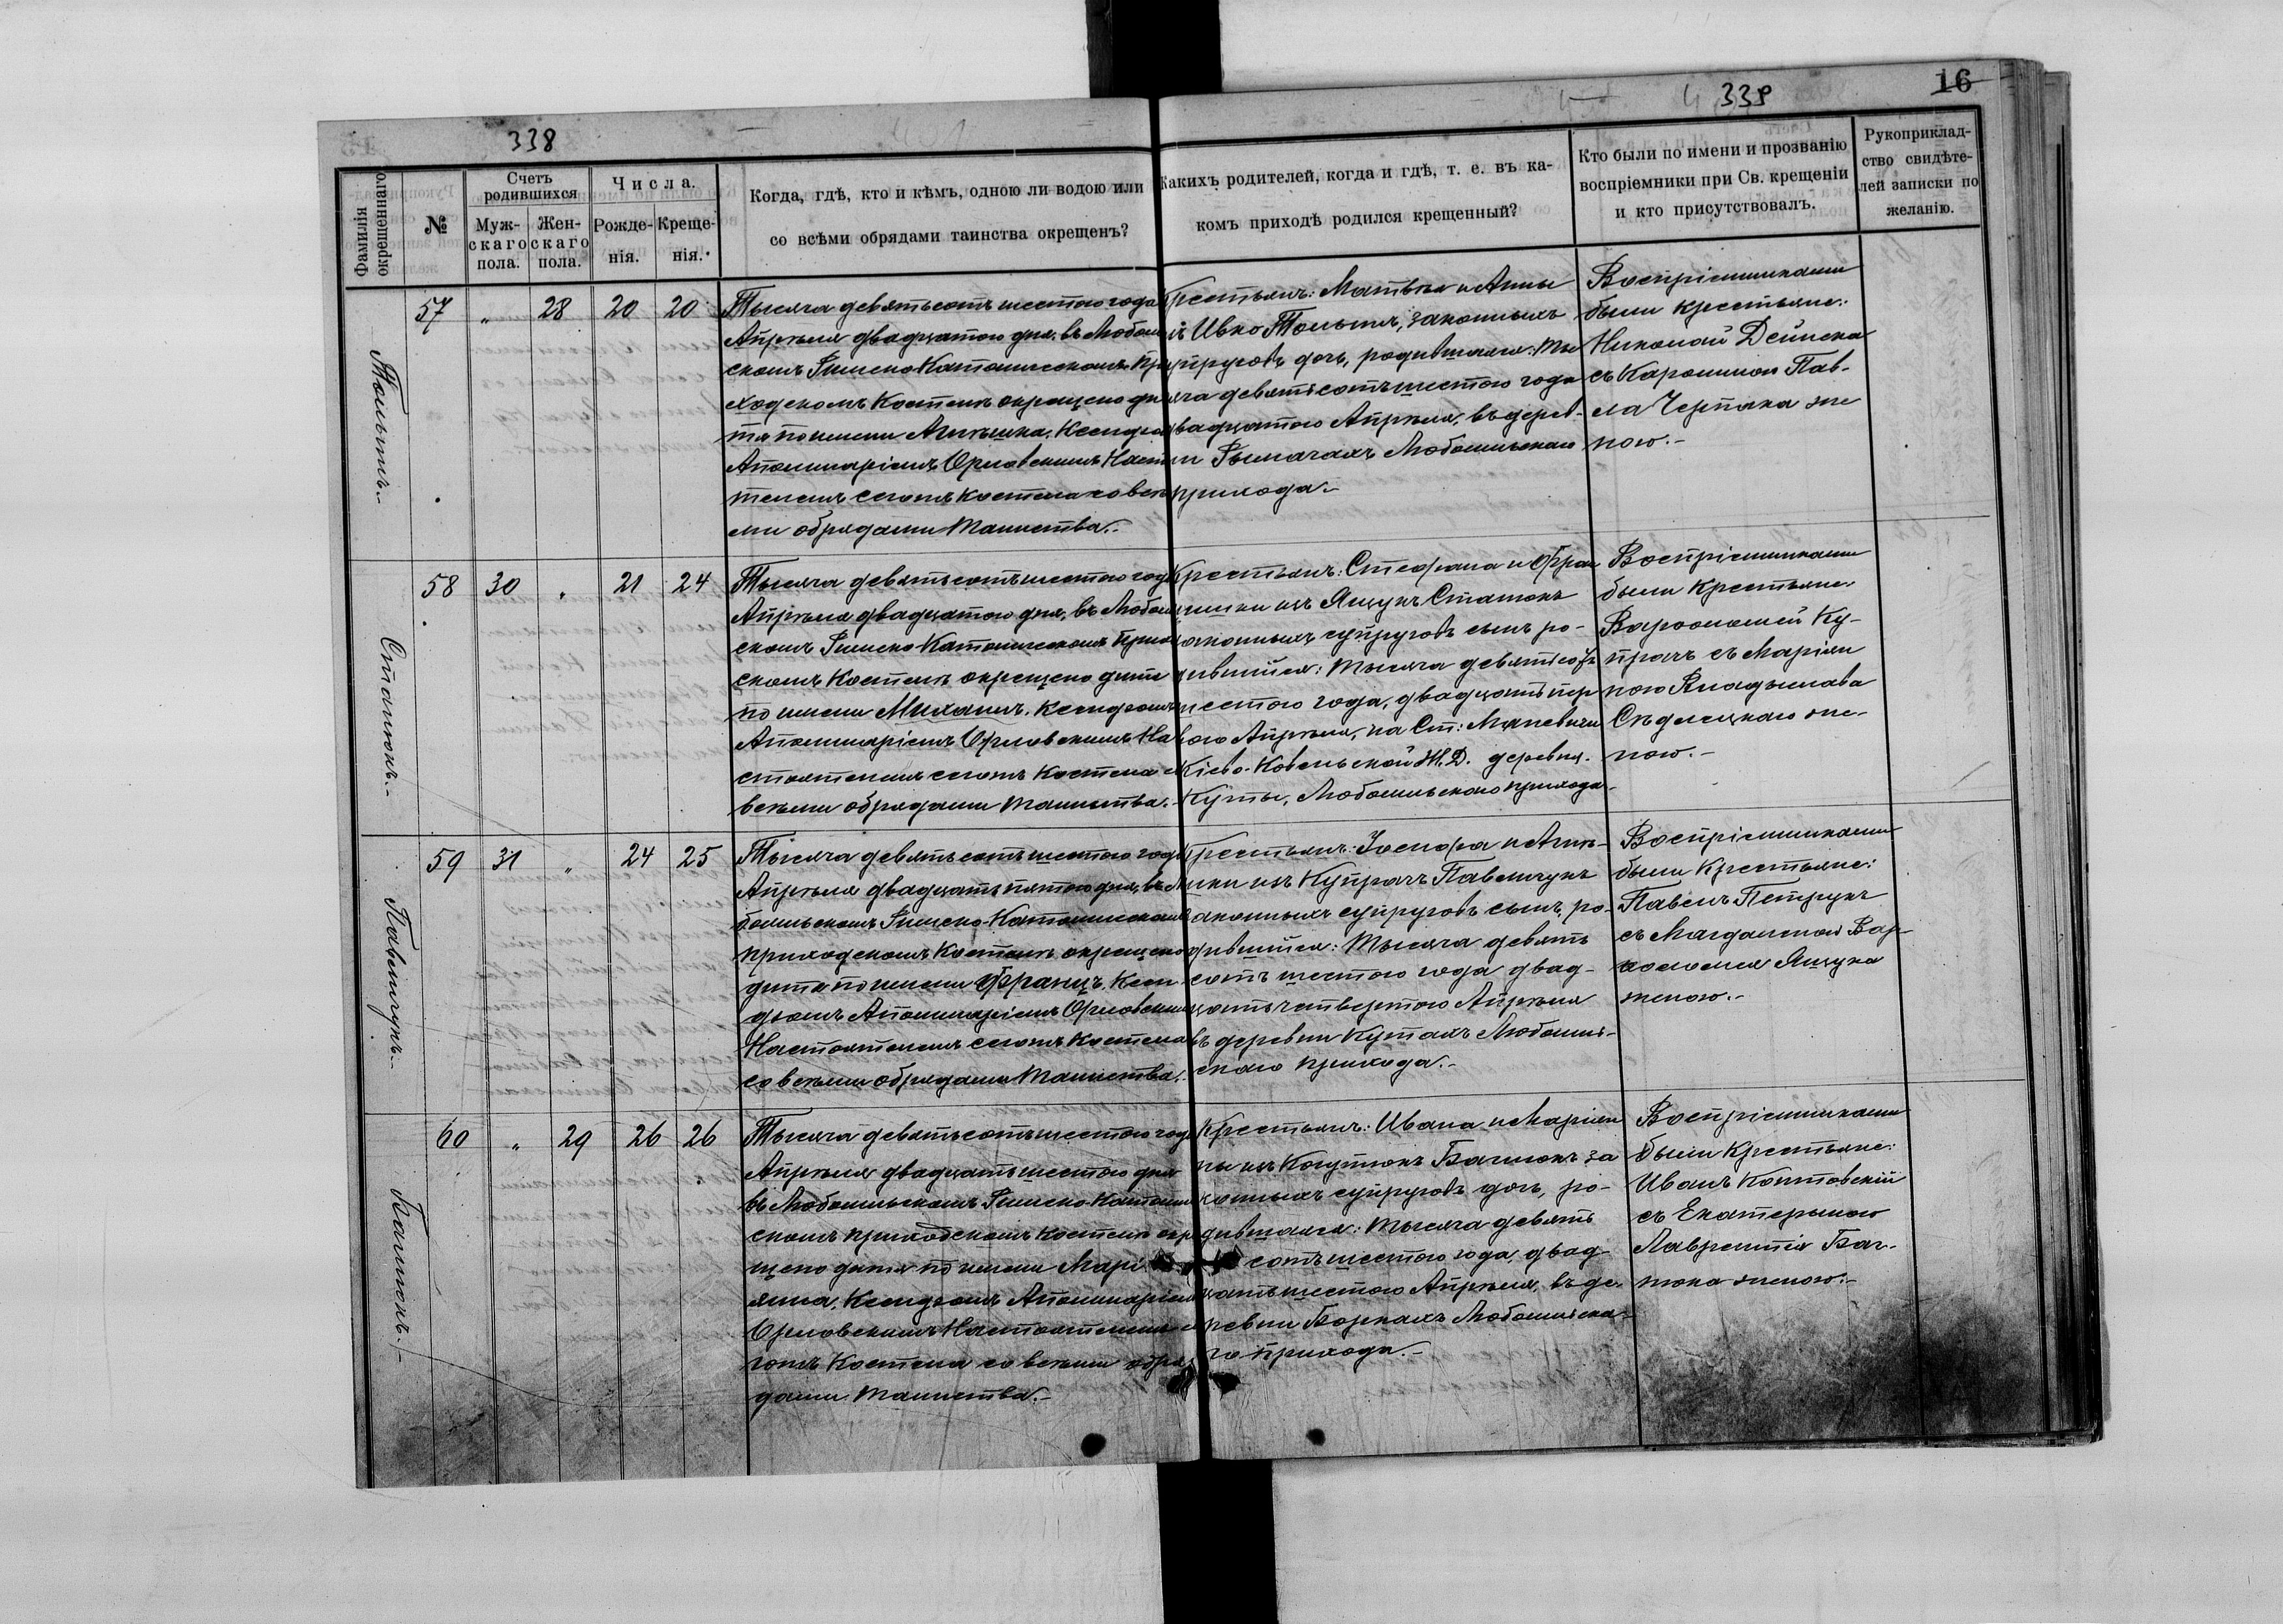 338
339
16
Фамилія окрещеннаго.
№
Счетъ родившихся
Муж-
скаго
пола.
Жен-
скаго
пола.
Числа.
Рожде-
нія.
Креще-
нія.
Когда, гдѣ, кто и кѣмъ, одною ли водою или
со всѣми обрядами таинства окрещенъ?
Какихъ родителей, когда и гдѣ, т. е. въ ка-
комъ приходѣ родился крещенный?
Кто были по имени и прозванію
воспріемники при Св. крещеніи
и кто присутствовалъ.
Рукоприклад-
ство свидѣте-
лей записки по
желанію.
57 " 28 20 20
Тысяча девятьсотъ шестого года
Апрѣля двадцатого дня, въ Любомль
скомъ Римско Католическомъ При
ходскомъ Костелѣ окрещено ди
тя по имени Агнѣшка. Ксендзомъ
Аполинаріемъ Орловскимъ Насто
телемъ сего Костела со всѣ
ми обрядами Таинства.-
Крестьянъ: Матвѣя и Анны
Ивко законныхъ
супруговъ дочь, родившаяся: Ты
сяча девятьсотъ шестого года
двадцатого Апрѣля, въ дерев-
ни Рымачахъ Любомльскаго
прихода.-
Воспріемниками
были крестьяне:
Николай Дейнека
съ Каролиной Пав-
ла Черпака же
ною.-
58 30 " 21 24
Статокъ.-
Тысяча девятьсотъ шестого года
Апрѣля двадцатого дня, въ Любомль
скомъ Римско Католическомъ Приход
скомъ Костелѣ окрещено дитя
по имени Михаилъ. Ксендзомъ
Аполинаріемъ Орловскимъ На
стоятелемъ сего Костела со
всѣми обрядами Таинства.-
Крестьянъ: Стефана и Фран
цишки изъ Ящукъ Статокъ
законныхъ супруговъ сынъ ро-
дившійся: Тысяча девятьсотъ
шестого года, двадцать пер
вого Апрѣля, на Ст: Маневичи
Кіево-Ковельской Ж.Д. деревня.
Куты, Любомльскаго прихода-
Воспріемниками
были Крестьяне
Варфоломей Ку-
прачъ съ Маріян
ною Владыслава
Сѣдлецкаго же-
ною.-
59 31 " 24 25
Павельчукъ.-
Тысяча девятьсотъ шестого года
Апрѣля двадцать пятого дня, въ Лю
бомльскомъ Римско-Католическомъ
приходскомъ Костелѣ окрещено
дитя по имени Францъ. Ксен-
дзомъ Аполинаріемъ Орловскимъ
Настоятелемъ сего Костела
со всѣми обрядами Таинства.
Крестьянъ: Іосифа и Агнѣ-
шки изъ Купрачъ Павельчукъ
законныхъ супруговъ сынъ, ро-
дившійся: Тысяча девять
сотъ шестого года двад-
цать четвертого Апрѣля
въ деревни Кутахъ Любомль-
скаго прихода.-
Воспріемниками
были Крестьяне:
Павелъ Петрукъ
съ Магдаленой Вар-
фоломея Ящука
женою.-
60 " 29 26 26
Тысяча девятьсотъ шестого года
Апрѣля двадцать шестого дня
въ Любомльскомъ Римско Католиче
скомъ приходскомъ Костелѣ окре
щено дитя по имени Марі
янна. Ксендзомъ Аполинаріемъ
Орловскимъ Настоятелемъ се
го Костела со всѣми обря
дами Таинства.-
Крестьянъ: Ивана и Маріян
ны изъ за
конныхъ супруговъ дочь, ро-
дившаяся: Тысяча девять
сотъ шестого года, двад-
цать шестого Апрѣля, въ де-
ревни Боркахъ Любомльска-
го прихода.-
Воспріемниками
были Крестьяне:
Иванъ
съ Екатериною
Лаврентія Баг-
тюка женою.-